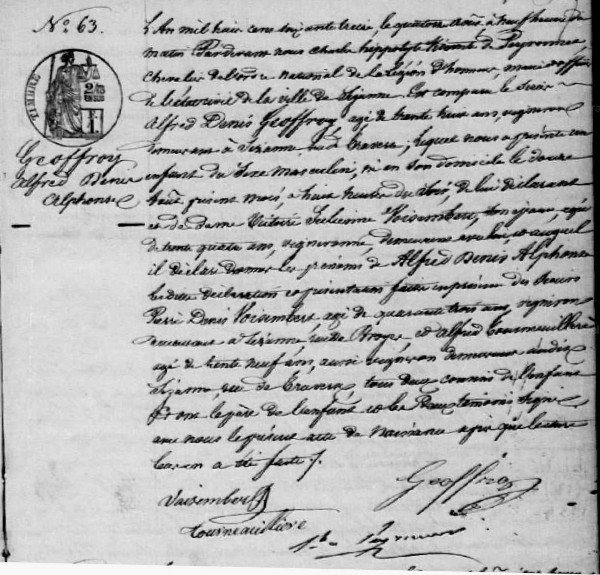 N° 63.
TIMBRE
Geoffroy
Alfred Denis
Alphonse
L'An mil huit cent soixante treize, le quatorze Août à neuf heures du
matin Pardevant nous Charles hippolyte Vicomte de Peyronnet
Chevalier de l'ordre national de la Légion d'honneur, maire officier
de l'état civil de la ville de Sézanne Est comparu le Sieur
Alfred Denis Geoffroy agé de trente huit ans, vigneron
demeurant à Sézanne, rue de Travers, lequel nous a présenté un
enfant du Sexe masculin, né en son domicile le douze
Août, présent mois, à huit heures du soir, de lui déclarant
et de Dame Victoire Voisembert, son épouse, agée
de trente quatre ans, vigneronne, demeurant avec lui, et auquel
il déclare donner les prénoms de Alfred Denis Alphonse
Les dites déclaration et présentation faites en présence des Sieurs
Pierre Denis Voisembert agé de quarante trois ans, vigneron
demeurant à Sézanne rue de Broyes, et Alfred Tourneuillière
agé de trente neuf ans, aussi vigneron demeurant audit
Sézanne, rue de Travers, tous deux connus de l'enfant
Et ont le père de l'enfant et les Deux témoins signé
avec nous le présent acte de Naissance après que lecture
leur en a été faite /.
Geoffroy
Voisembert
Tourneuillière